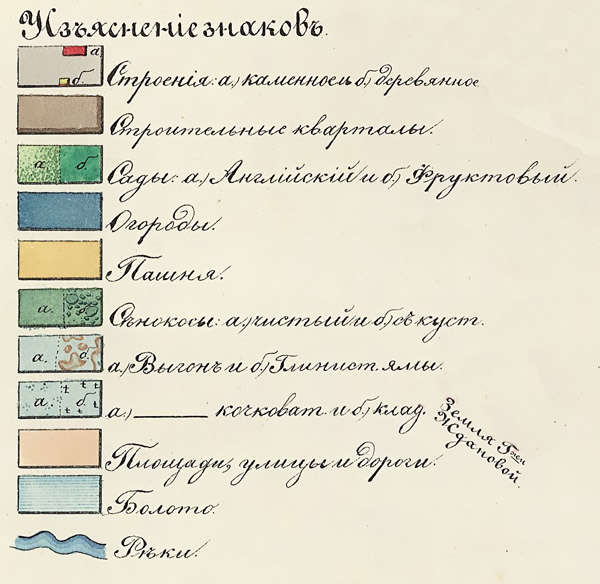 Изъясненіе знаковъ.
а
б
Строенія: а.) каменное и б) деревянное
Строительные кварталы.
а.
б
Сады: а.) Англійскій и б.) Фруктовый.
Огороды.
Пашня.
а.
б
Сѣнокосы: а.) чистый и б) съ куст.
а.
б
а.) Выгонъ и б) Глинист ямы.
а.
б
а.) ______ кочковат. и б.) клад.
Земля Г-жи
Ждановой.
Площади, улицы и дороги.
Болото.
Рѣки.